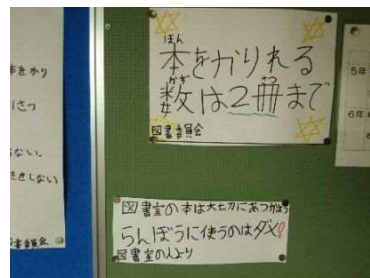 ほん
本をかりれる
かず さつ
数は2冊まで
図書委員会
図書室の本は大切にあつかおう
らんぼうに使うのはダメ!
図書室の人より
5年
6年
さつ
ない。
しない